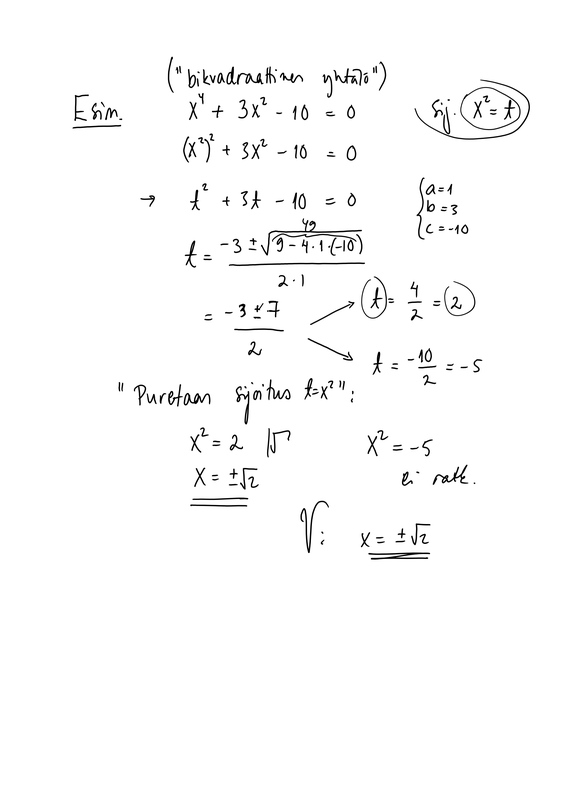 ("bikvadraattinen yhtälö")
Esim. x⁴ + 3x² - 10 = 0 sij. x² = t
(x²)² + 3x² - 10 = 0
→ t² + 3t - 10 = 0
{ a = 1
b = 3
c = -10
49
t = (-3 ± √(9 - 4·1·(-10))) / (2·1)
= (-3 ± 7) / 2
t = 4/2 = 2
t = -10/2 = -5
"Puretaan sijoitus t=x²":
x² = 2 |√ x² = -5
x = ±√2 ei ratk.
V: x = ±√2